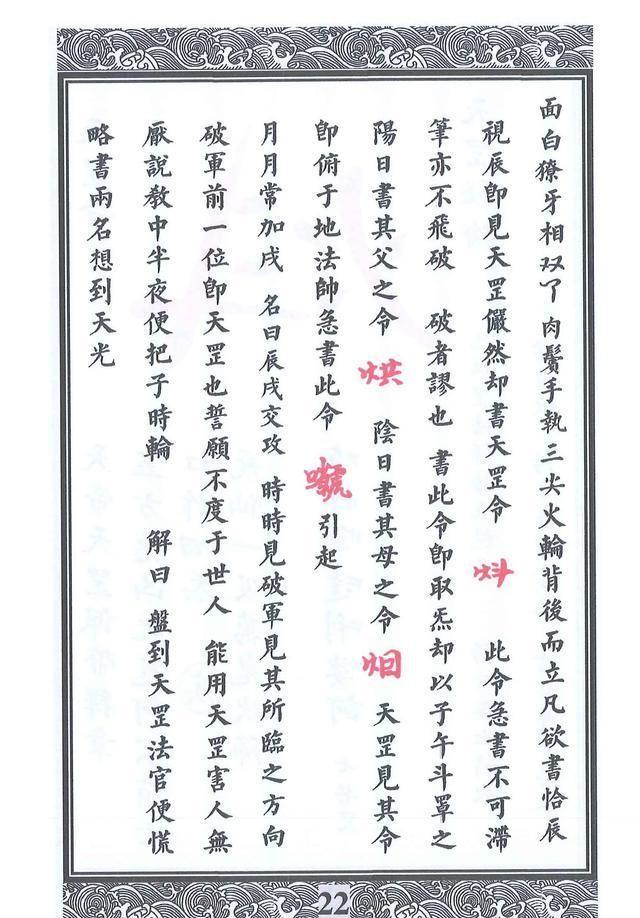 面白獠牙相双丫肉鬢手執三尖火輪背後而立凡欲書恰辰
視辰卽見天罡儼然却書天罡令 炓 此令急書不可滯
筆亦不飛破 破者謬也 書此令卽取炁却以子午斗罩之
陽日書其父之令 烘 陰日書其母之令 烟 天罡見其令
卽俯于地法帥急書此令 引起
月月常加戌 名曰辰戌交攻 時時見破軍見其所臨之方向
破軍前一位卽天罡也誓願不度于世人 能用天罡害人無
厭說教中半夜便把子時輪 解曰 盤到天罡法官便慌
略書兩名想到天光
22